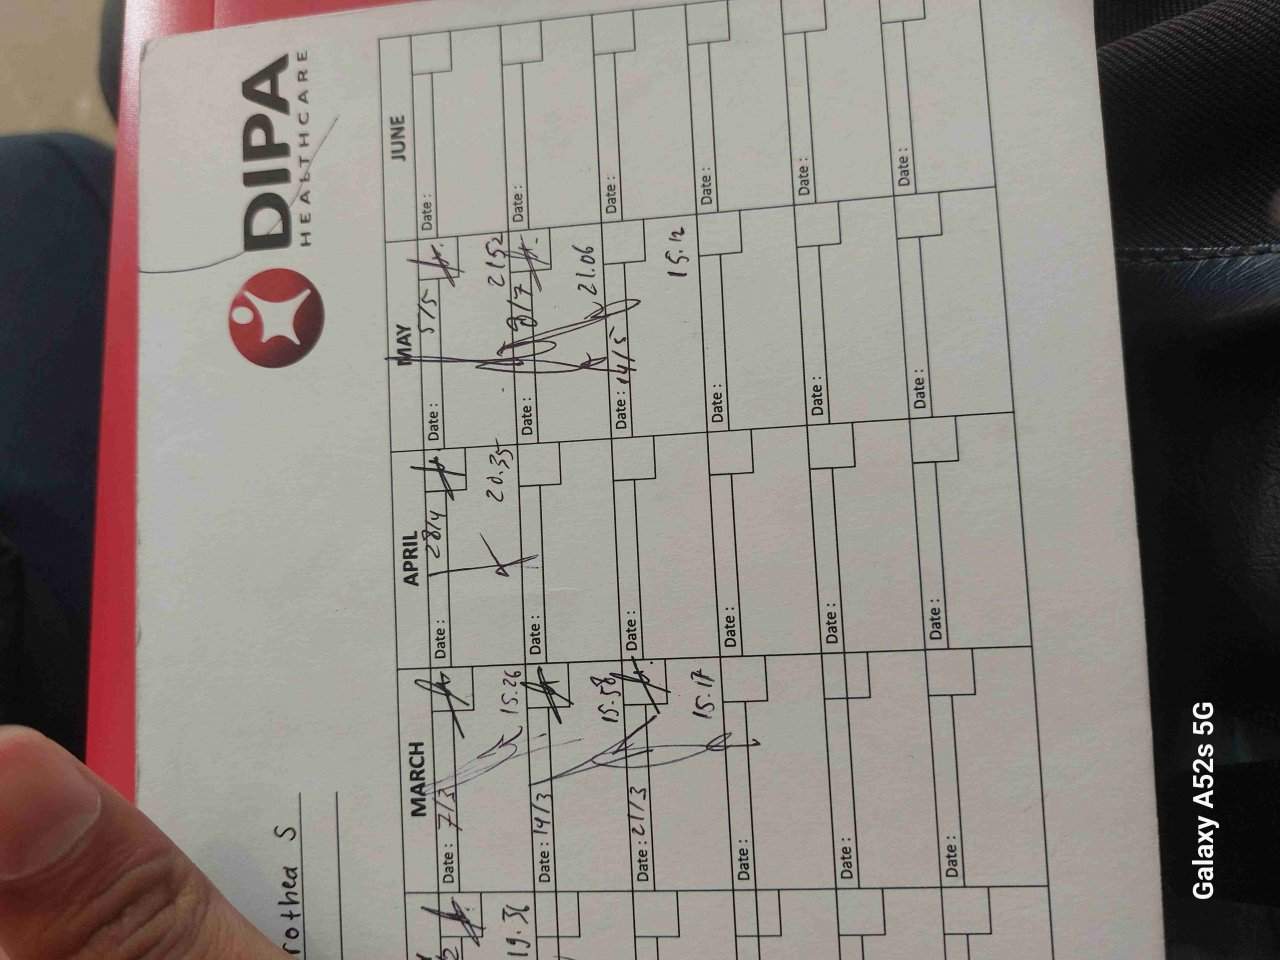 DIPA
HEALTHCARE
rothea S
MARCH
APRIL
MAY
JUNE
19.36
Date : 7/3
15.26
Date : 28/4
20.35
Date : 5/5
21.52
Date :
Date : 14/3
15.58
Date :
Date :
21.06
Date :
Date : 21/3
15.17
Date :
Date : 14/5
15.12
Date :
Date :
Date :
Date :
Date :
Date :
Date :
Date :
Date :
Date :
Date :
Date :
Date :
Galaxy A52s 5G